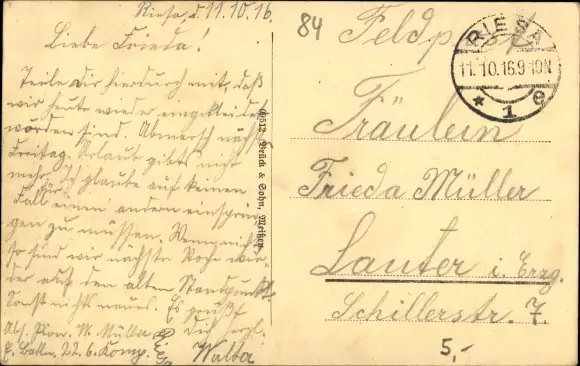 Riesa, d. 11.10.16.
Liebe Frieda!
Teile Dir hierdurch mit, daß
wir heute wieder eingekleidet
worden sind. Abmarsch nächst.
Freitag. Urlaub gibts nicht
mehr. Ich glaube auf keinen
Fall für einen andern einsprin-
gen zu müssen. Wenn nicht
so sind wir nächste Woche wie-
der auf den alten Standpunkt.
Sonst nichts neues. Es grüßt
Dich herzl.
Walter
Abs. Pion. W. Müller, Riesa
E. Batln. 22. 6. Komp.
9512 Brück & Sohn, Meißen.
84
Feldpost
RIESA
11.10.16.9-10N
* 1 e
Fräulein
Frieda Müller
Lauter i. Erzg.
Schillerstr. 7.
5,-